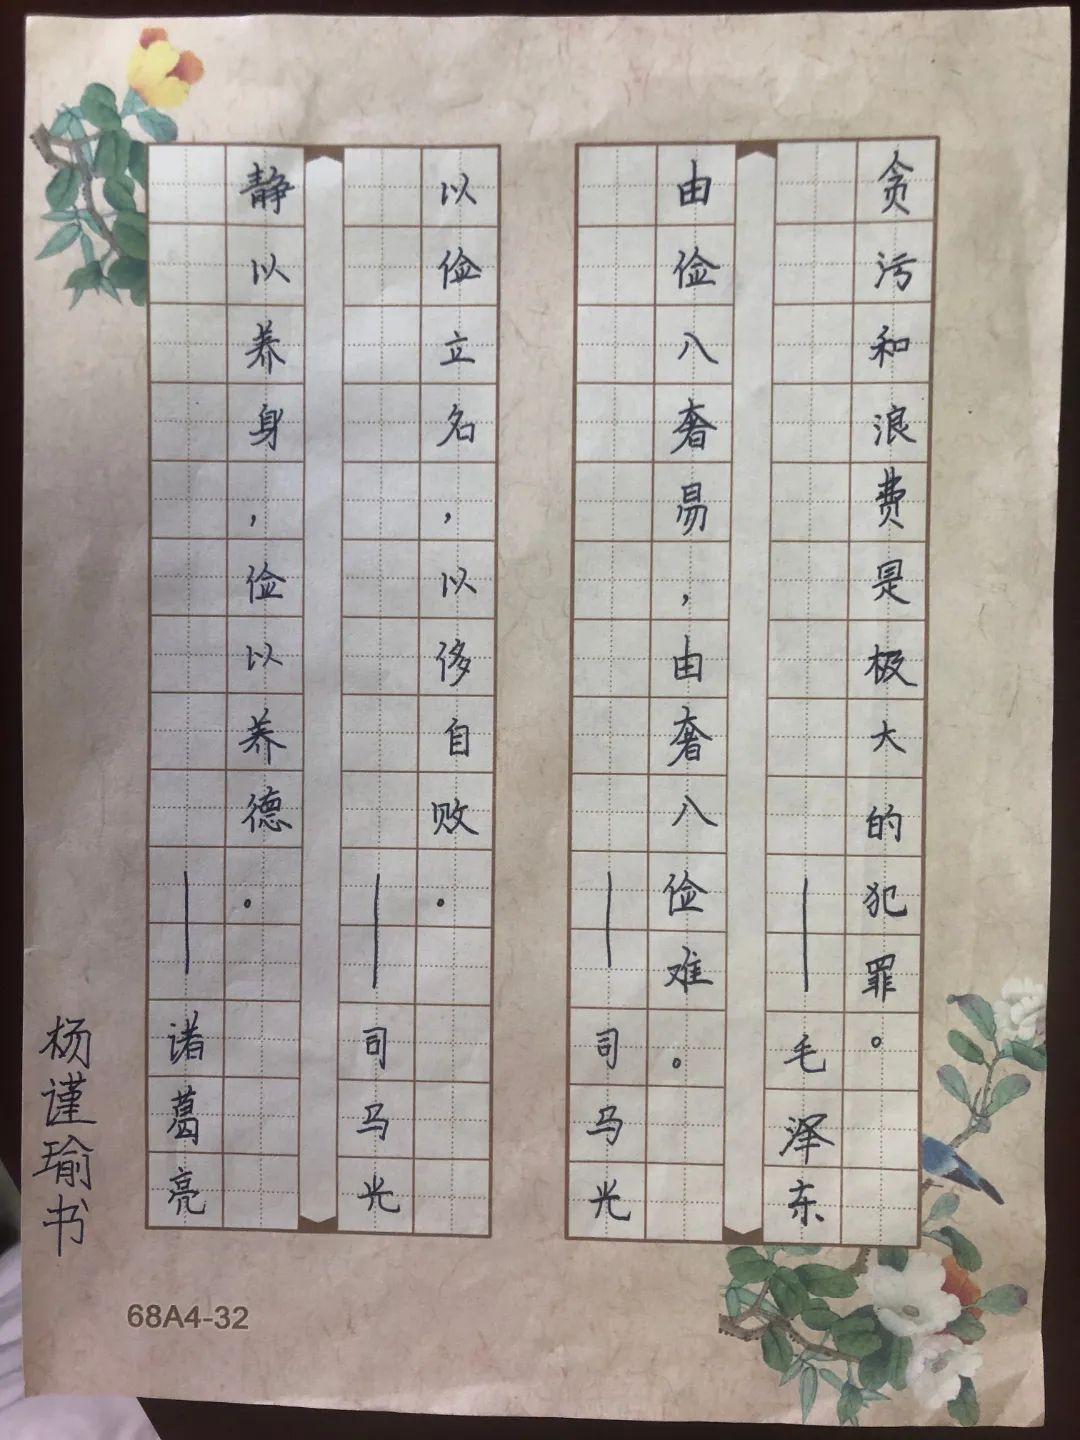 贪污和浪费是极大的犯罪。
——毛泽东
由俭入奢易，由奢入俭难。
——司马光
以俭立名，以侈自败。
——司马光
静以养身，俭以养德。
——诸葛亮
杨谨瑜书
68A4-32